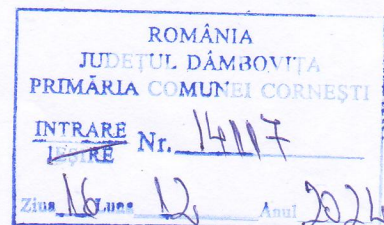 ROMÂNIA
JUDEȚUL DÂMBOVIȚA
PRIMĂRIA COMUNEI CORNEȘTI
INTRARE
IEȘIRE Nr. 14117
Ziua 16 Luna 12 Anul 2024